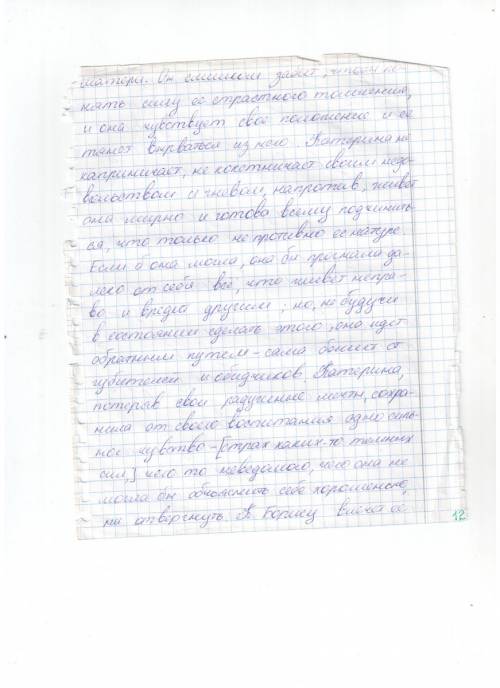 матери. Он слишком забит, чтобы по-
нять силу её страстного томленья,
и она чувствует своё положение и её
тянет вырваться из него. Катерина не
капризничает, не кокетничает своим недо-
вольством и гневом, напротив, живёт
она мирно и готова всему подчинить-
ся, что только не противно её натуре.
Если б она могла, она бы прогнала да-
леко от себя всё, что живёт непра-
во и вредит другим; но, не будучи
в состоянии сделать этого, она идёт
обратным путём - сама бежит от
губителей и обидчиков. Катерина,
потеряв свои радушные мечты, сохра-
нила от своего воспитания одно силь-
ное чувство - [страх каких-то темных
сил,] чего то неведомого, чего она не
могла бы объяснить себе хорошенько,
ни отвергнуть. К Борису влечёт её
12